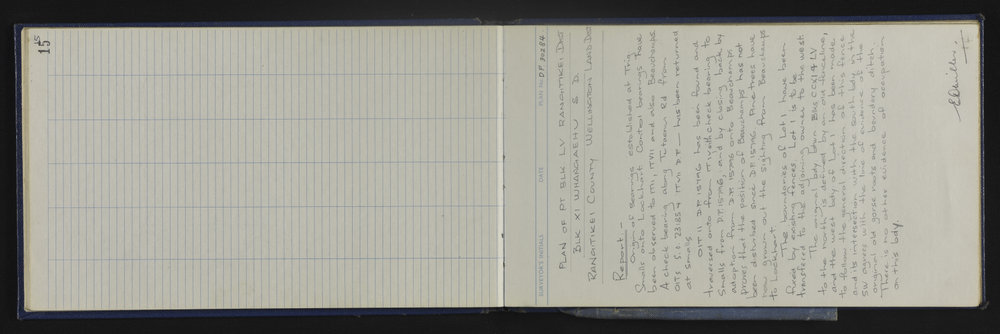 15
15
SURVEYOR'S INITIALS DATE PLAN No. D.P. 30284
PLAN OF PT BLK LV RANGITIKEI DIST
BLK XI WHANGAEHU S D
RANGITIKEI COUNTY WELLINGTON LAND DIST
Report:-
Origin of Bearings established at Trig
Smalls onto Lockhart. Control bearings have
been observed to M1, ITVII and also Beauchamps.
A check bearing along Titaenui Rd from
OITs S.O. 23854 ITVII D.P. — has been returned
at Smalls
OIT II D.P. 15796 has been found and
traversed onto from ITVII with check bearing to
Smalls from D.P. 15796, and by closing back by
adoption from D.P. 15796 onto Beauchamps
proves that the position of Beauchamps has not
been disturbed since D.P. 15796. Pine trees have
now grown out the sighting from Beauchamps
to Lockhart
The boundaries of Lot 1 have been
fixed by existing fences. Lot 1 is to be
transfered to the adjoining owner to the west
The original bdy between Blks CCXI & LV
to the north is defined by an old fenceline,
and the west bdy of Lot 1 has been made
to follow the general direction of this fence
and its intersection with the south bdy in the
SW agrees with the line of evidence of the
original old gorse roots and boundary ditch.
There is no other evidence of occupation
on this bdy.